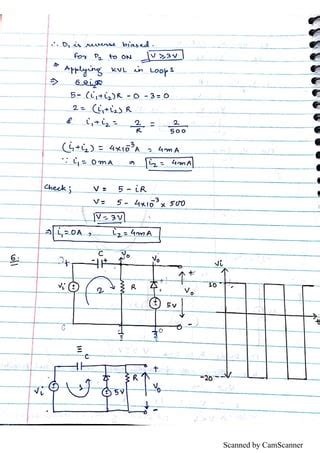 ∴ D₁ is reverse biased.
for D₂ to ON V ≥ 3V
* Applying KVL in Loops
5 - (i₁+i₂)R - 0 - 3 = 0
2 = (i₁+i₂)R
i₁+i₂ = 2/R = 2/500
(i₁+i₂) = 4×10⁻³A = 4mA
∵ i₁ = 0mA ⇒ i₂ = 4mA
Check ; V = 5 - iR
V = 5 - 4×10⁻³ × 500
V = 3V
⇒ i₁ = 0A , i₂ = 4mA
6:
C V₀ V₀ Vi
+ +
Vi 2 R V₀ 10
5V
-
-20
≡
C
+
Vi 1 5V R V₀
-
Scanned by CamScanner